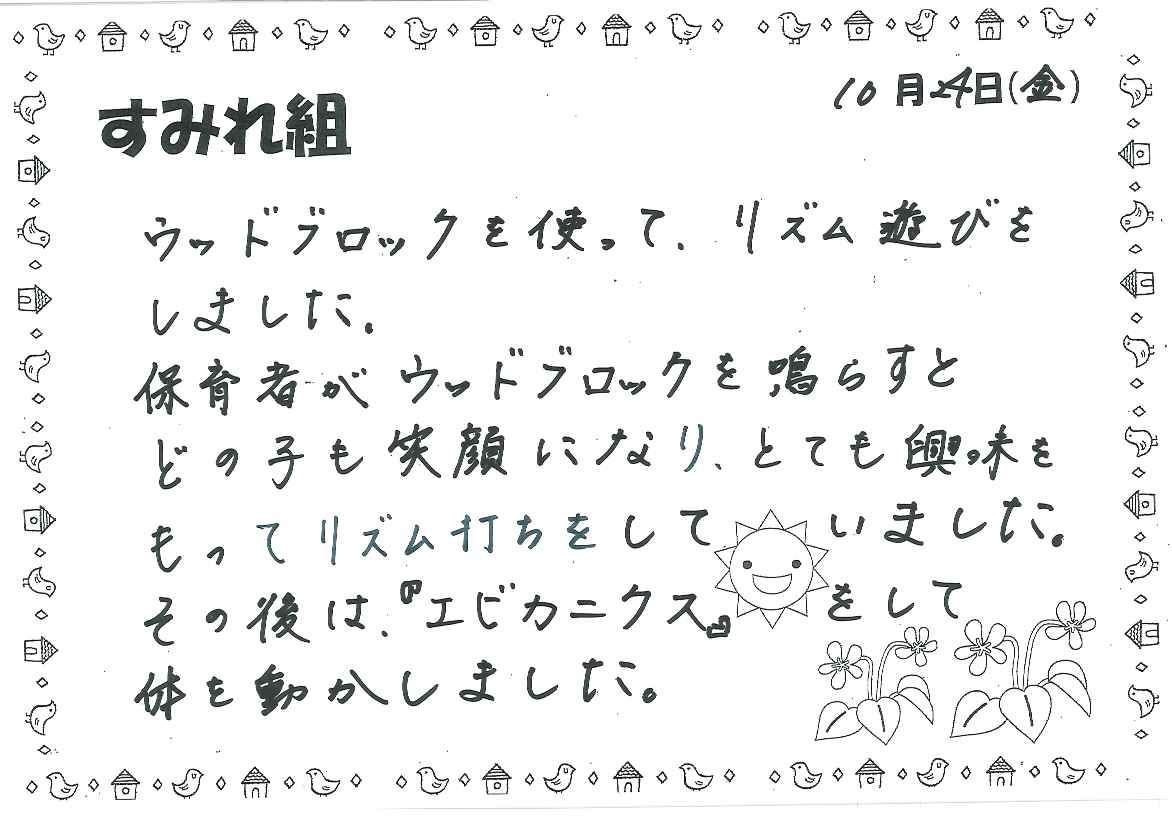 10月24日(金)
すみれ組
ウッドブロックを使って、リズム遊びを
しました。
保育者がウッドブロックを鳴らすと
どの子も笑顔になり、とても興味を
もってリズム打ちをしていました。
その後は、『エビカニクス』をして
体を動かしました。